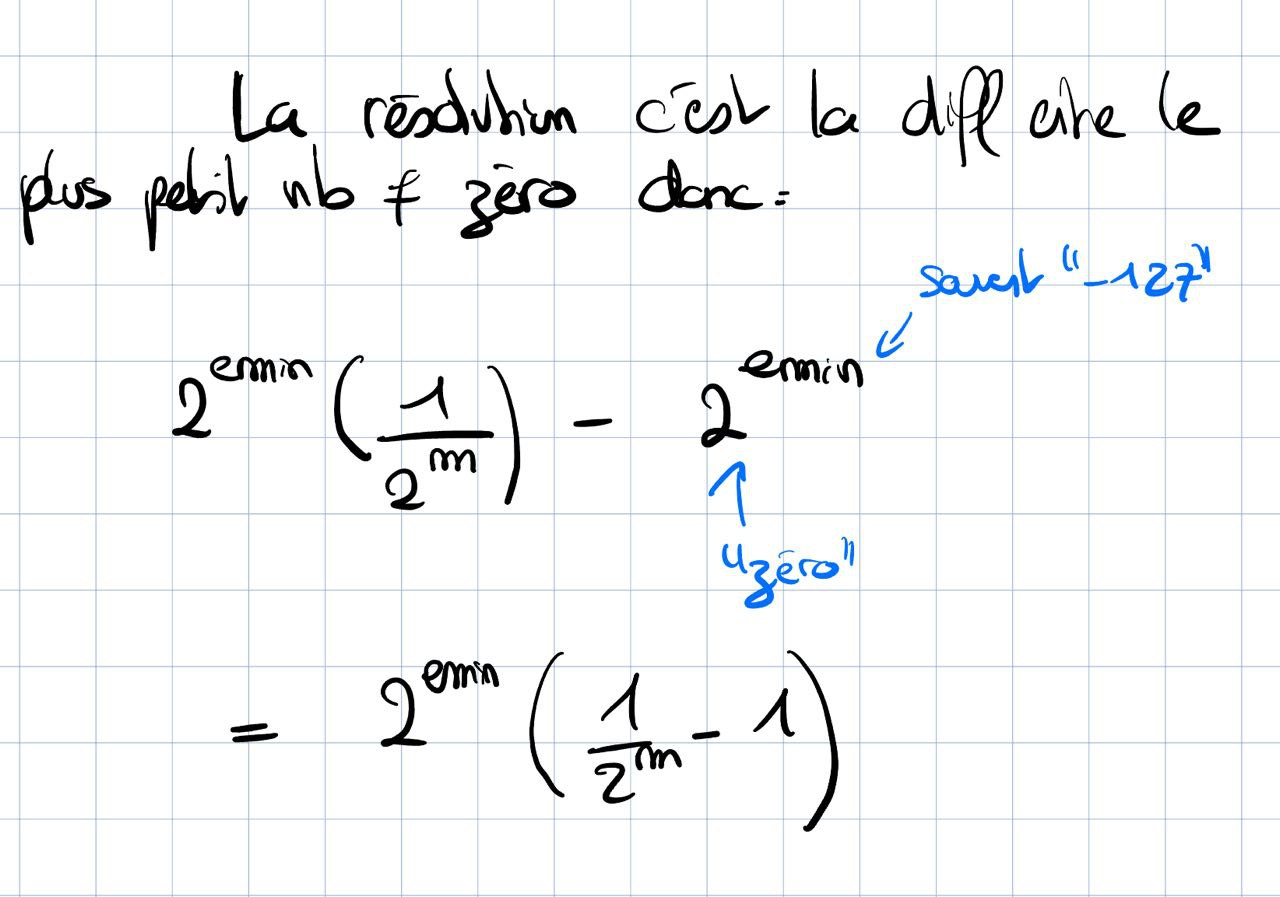 La résolution c'est la diff entre le
plus petit nb ≠ zéro donc :
souvent "-127"
2^emin (1/2^m) - 2^emin
"zéro"
= 2^emin (1/2^m - 1)